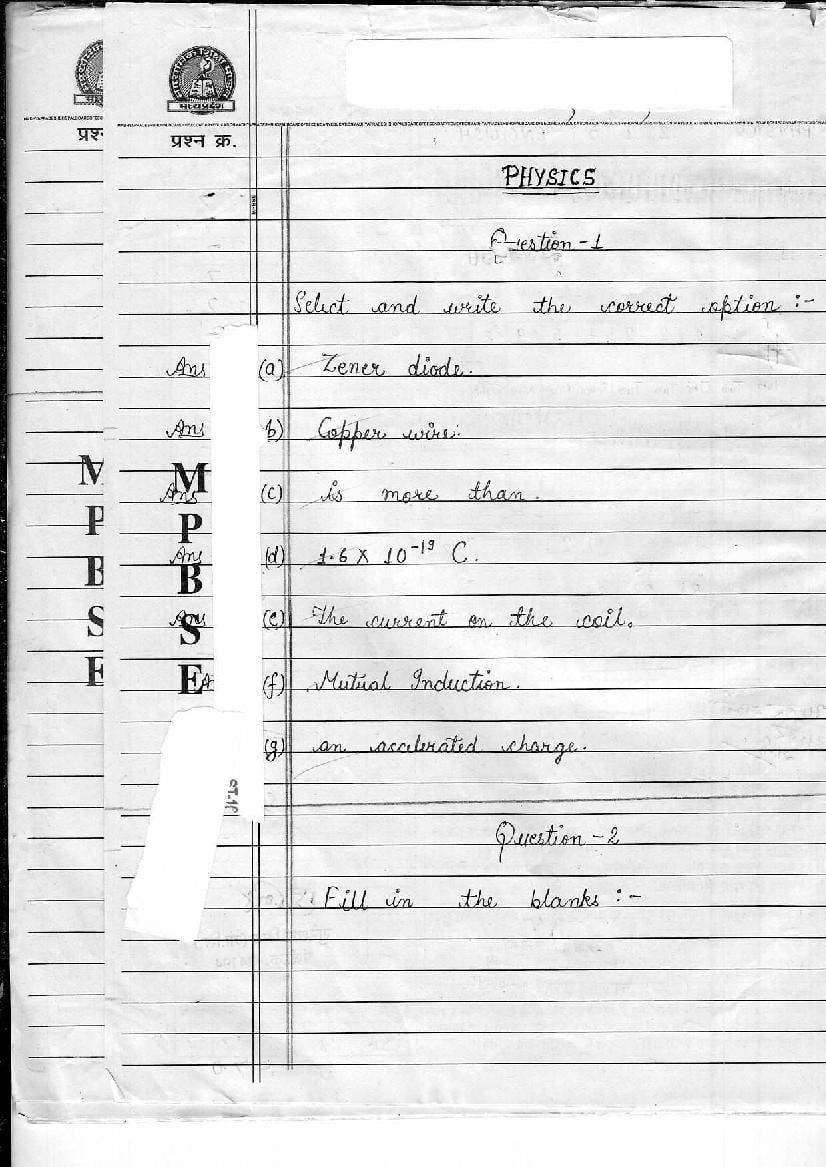 मध्यप्रदेश
प्रश्न
प्रश्न क्र.
PHYSICS
Question-1
Select and write the correct option :-
Ans (a) Zener diode.
Ans b) Copper wire.
Ans (c) is more than.
Ans (d) 1.6 X 10⁻¹⁹ C.
Ans (e) The current on the coil.
(f) Mutual Induction.
(g) an accelerated charge.
M
P
B
S
E
M
P
B
S
E
Question-2
Fill in the blanks :-